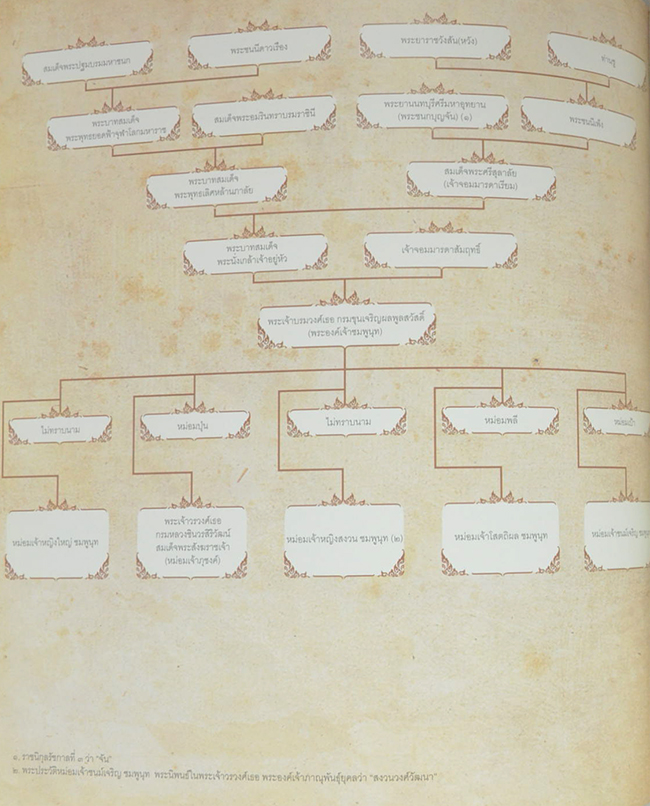 สมเด็จพระปฐมบรมมหาชนก
พระชนนีดาวเรือง
พระยาราชวังสัน(หวัง)
ท่านชู
พระบาทสมเด็จ
พระพุทธยอดฟ้าจุฬาโลกมหาราช
สมเด็จพระอมรินทราบรมราชินี
พระยานนทบุรีศรีมหาอุทยาน
(พระชนกบุญจัน) (๑)
พระชนนีเพ็ง
พระบาทสมเด็จ
พระพุทธเลิศหล้านภาลัย
สมเด็จพระศรีสุลาลัย
(เจ้าจอมมารดาเรียม)
พระบาทสมเด็จ
พระนั่งเกล้าเจ้าอยู่หัว
เจ้าจอมมารดาสัมฤทธิ์
พระเจ้าบรมวงศ์เธอ กรมขุนเจริญผลพูลสวัสดิ์
(พระองค์เจ้าชมพูนุท)
ไม่ทราบนาม
หม่อมปุ่น
ไม่ทราบนาม
หม่อมพลี
หม่อมเจ้าหญิงใหญ่ ชมพูนุท
พระเจ้าวรวงศ์เธอ
กรมหลวงชินวรสิริวัฒน์
สมเด็จพระสังฆราชเจ้า
(หม่อมเจ้าภุชงค์)
หม่อมเจ้าหญิงสงวน ชมพูนุท (๒)
หม่อมเจ้าโสตถิผล ชมพูนุท
หม่อมเจ้าชนม์เจริญ
๑. ราชนิกุลรัชกาลที่ ๓ ว่า "จัน"
๒. พระประวัติหม่อมเจ้าชนม์เจริญ ชมพูนุท พระนิพนธ์ในพระเจ้าวรวงศ์เธอ พระองค์เจ้าภาณุพันธุ์ยุคลว่า "สงวนวงศ์วัฒนา"